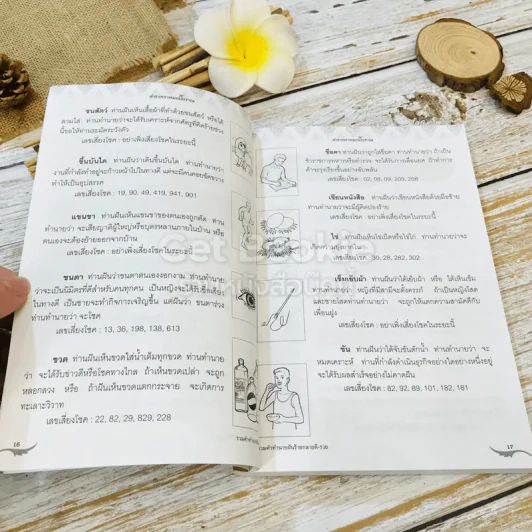 ตำราพรหมณ์โบราณ
ขนสัตว์ ท่านฝันเห็นเสื้อผ้าที่ทำด้วยขนสัตว์ หรือได้
สวมใส่ ท่านทำนายว่าจะได้รับเคราะห์จากศัตรูที่คิดร้ายช่วง
นี้ขอให้ท่านระมัดระวังตัว
เลขเสี่ยงโชค : อย่าเพิ่งเสี่ยงโชคในระยะนี้
ขึ้นบันได ท่านฝันว่าเดินขึ้นบันได ท่านทำนายว่า
งานที่กำลังทำอยู่จะก้าวหน้าไปในทางดี แต่จะมีคนคอยขัดขวาง
ทำให้เป็นอุปสรรค
เลขเสี่ยงโชค : 19, 90, 49, 419, 941, 901
แขนขา ท่านฝันเห็นแขนขาของตนเองถูกตัด ท่าน
ทำนายว่า จะเสียญาติผู้ใหญ่หรือบุตรหลานภายในบ้าน หรือ
ตนเองจะต้องย้ายออกจากบ้าน
เลขเสี่ยงโชค : อย่าเพิ่งเสี่ยงโชคในระยะนี้
ขนตา ท่านฝันว่าขนตาตนเองงอกงาม ท่านทำนาย
ว่าจะเป็นนิมิตรที่ดีสำหรับคนทุกคน เป็นหญิงจะได้รับชื่อเสียง
ในทางดี เป็นชายจะทำกิจการเจริญขึ้น แต่ฝันว่า ขนตาร่วง
ท่านทำนายว่า จะโชคดี
เลขเสี่ยงโชค : 13, 36, 198, 138, 613
ขวด ท่านฝันเห็นขวดใส่น้ำเต็มทุกขวด ท่านทำนาย
ว่า จะได้รับข่าวดีหรือโชคทางไกล ถ้าเห็นขวดเปล่า จะถูก
หลอกลวง หรือ ถ้าฝันเห็นขวดแตกกระจาย จะเกิดการ
ทะเลาะวิวาท
เลขเสี่ยงโชค : 22, 82, 29, 829, 228
16
ตำราพรหมณ์โบราณ
ท่านฝันว่าถูกใส่ขื่อคา ท่านทำนายว่า ถ้าเป็น
ข้าราชการทหารหรือตำรวจ จะได้รับการเลื่อนยศ ถ้าทำการ
ค้าจะรุ่งเรืองขึ้นอย่างฉับพลัน
เลขเสี่ยงโชค : 02, 08, 09, 209, 258
เขียนหนังสือ ท่านฝันว่าเขียนหนังสือด้วยมือซ้าย
ท่านทำนายว่าจะมีผู้คิดปองร้าย
เลขเสี่ยงโชค : อย่าเพิ่งเสี่ยงโชคในระยะนี้
ไข่ ท่านฝันเห็นไข่เป็ดหรือไข่ไก่ ท่านทำนายว่าจะ
เกิดความยุ่งยากใจ
เลขเสี่ยงโชค : 30, 28, 282, 302
เข็มเย็บผ้า ท่านฝันว่าได้เย็บผ้า หรือ ได้เห็นเข็ม
ท่านทำนายว่า หญิงที่มีสามีจะตั้งครรภ์ ถ้าเป็นหญิงโสด
และชายโสดท่านทำนายว่า จะถูกให้แตกความสามัคคีกับ
เพื่อนฝูง
เลขเสี่ยงโชค : อย่าเพิ่งเสี่ยงโชคในระยะนี้
ขัน ท่านฝันว่าได้จับขันตักน้ำ ท่านทำนายว่า จะ
หมดเคราะห์ ท่านที่กำลังดำเนินธุรกิจอย่างใดอย่างหนึ่งอยู่
จะได้รับผลสำเร็จอย่างไม่คาดฝัน
เลขเสี่ยงโชค : 82, 92, 89, 101, 182, 181
17